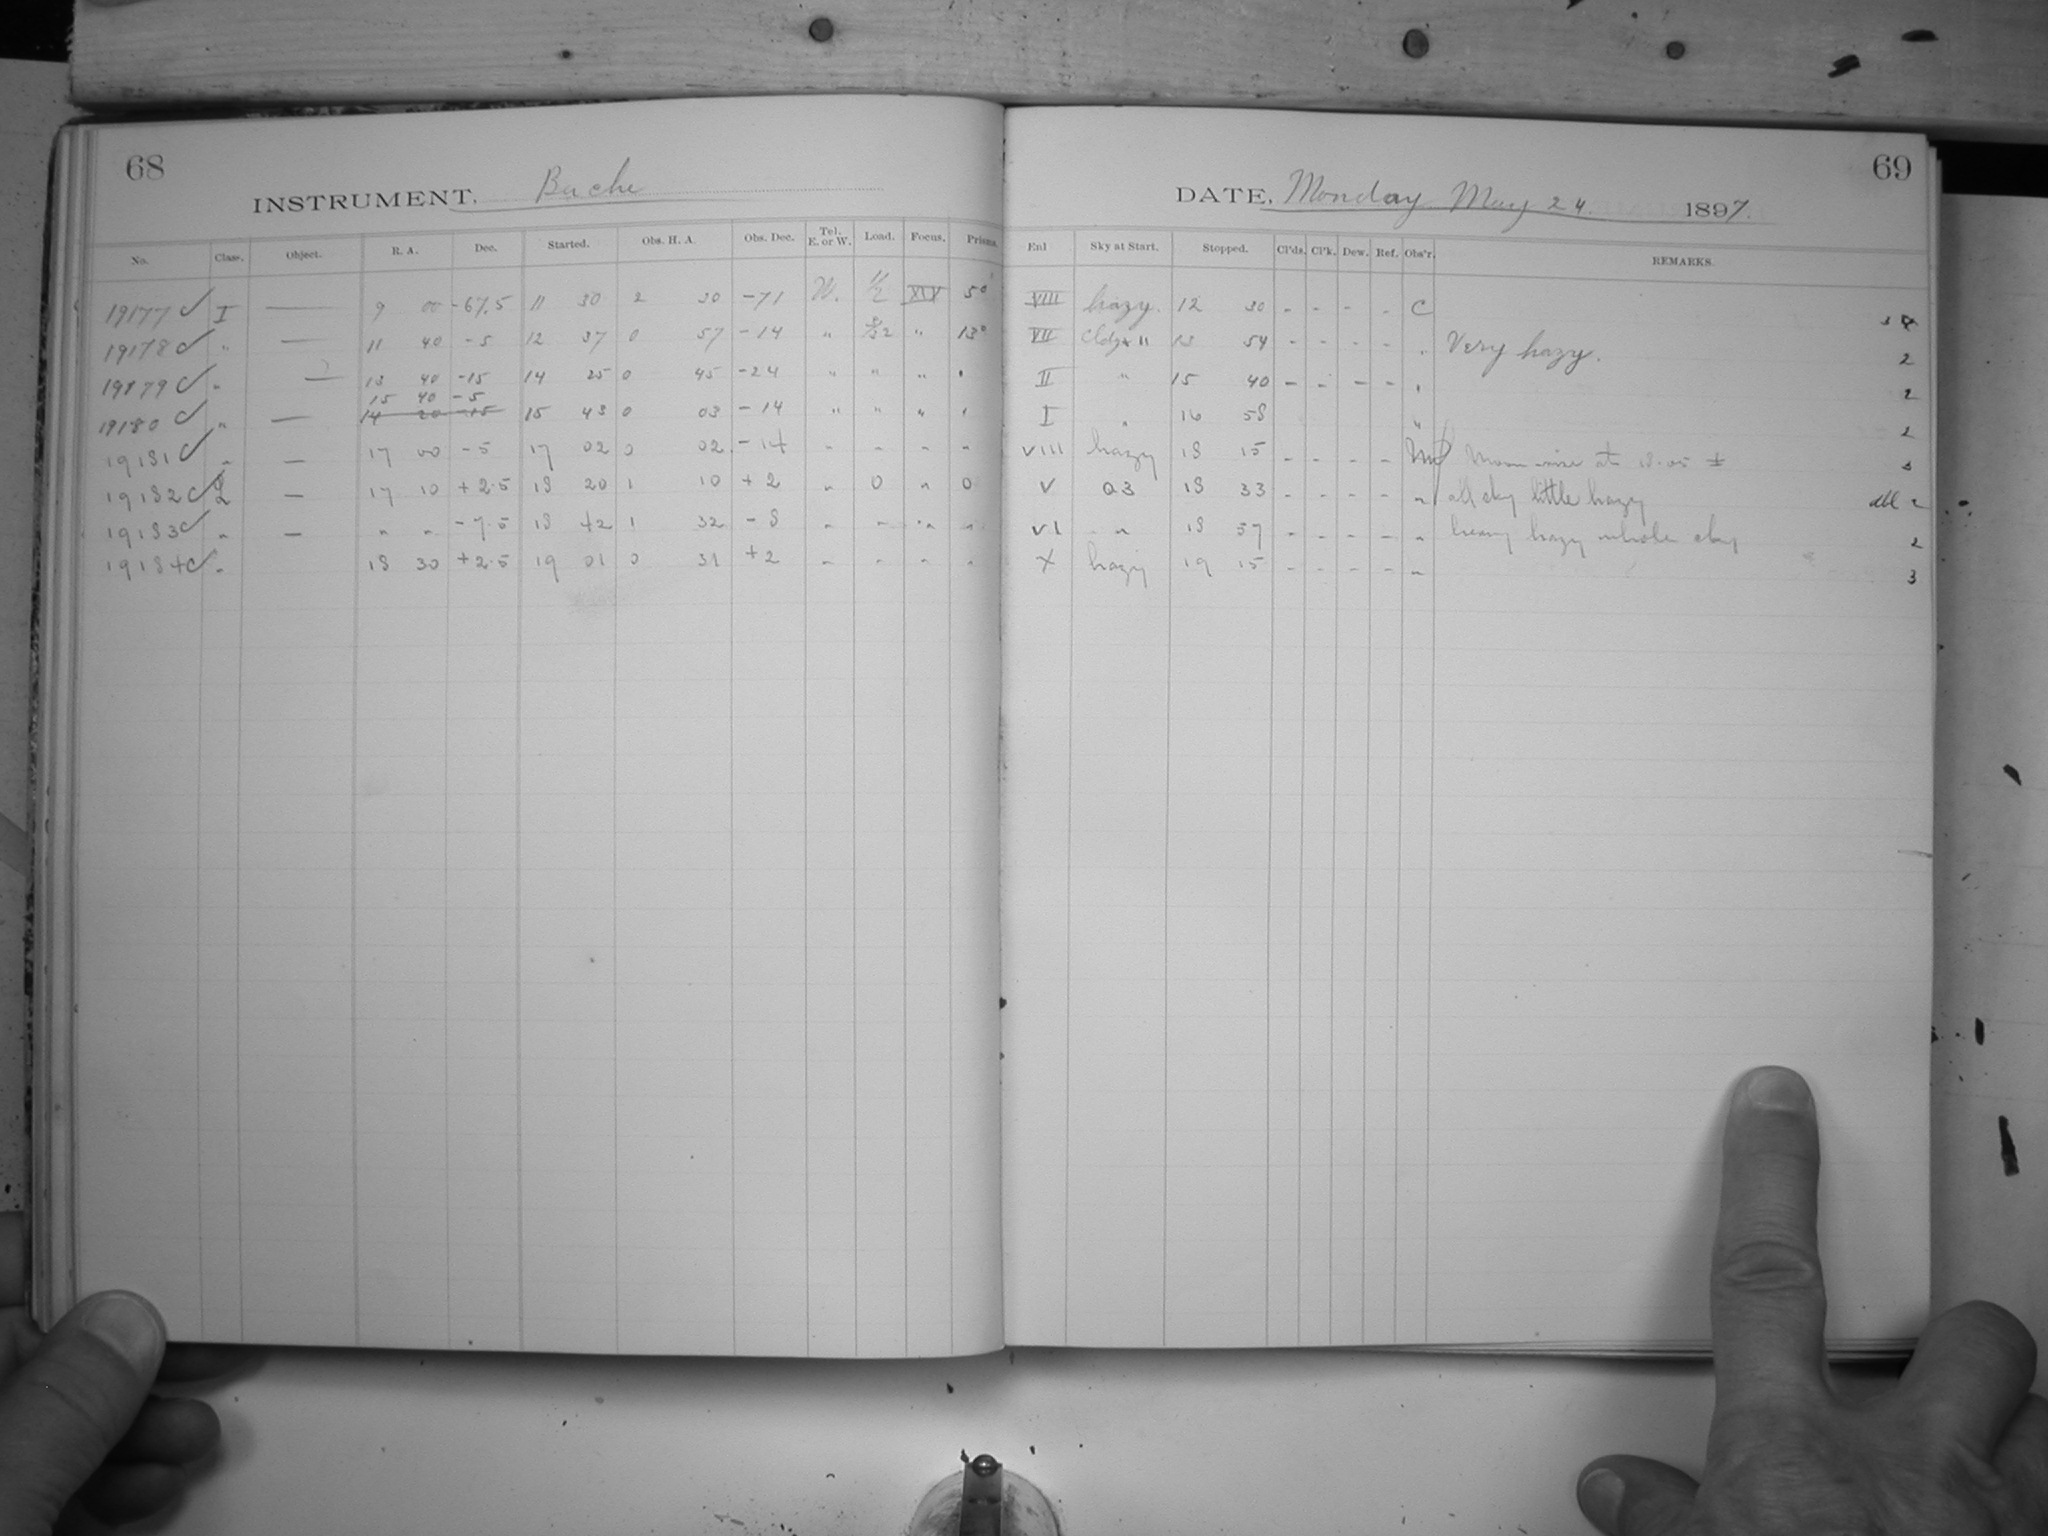 68
INSTRUMENT, Bache
No. Class. Object. R. A. Dec. Started. Obs. H. A. Obs. Dec. Tel. E. or W. Load. Focus. Prisms.
19177 I — 9 00 -67.5 11 30 2 30 -71 W. 1/2 XIV 5°
19178 " — 11 40 -5 12 37 0 57 -14 " " 13°
19179 " — 13 40 -15 14 25 0 45 -24 " " "
15 40 -5
19180 " — 14 20 -15 15 43 0 03 -14 " " "
19181 " — 17 00 -5 17 02 0 02 -14 " " " "
19182 2 — 17 10 +2.5 18 20 1 10 +2 " 0 " 0
19183 " — " " -7.5 18 42 1 32 -8 " " " "
19184 " 18 30 +2.5 19 01 0 31 +2 " " " "
69
DATE, Monday May 24 1897.
Enl Sky at Start. Stopped. Cl'ds. Cl'k. Dew. Ref. Obs'r. REMARKS.
VIII hazy. 12 30 - - - - C
VII 13 54 - - - - " Very hazy. 2
II " 15 40 - - - - " 2
I " 16 58 " 2
VIII hazy 18 15 - - - - Moon rise at 18.05 ±
V Q3 18 33 - - - - " all sky little hazy
VI " 18 57 - - - - " heavy hazy whole sky 2
X hazy 19 15 - - - - " 3